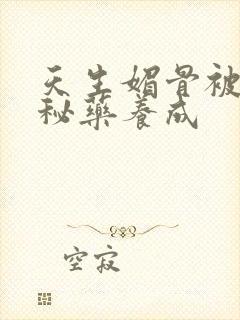 天生媚骨被
秘藥養成
空寂